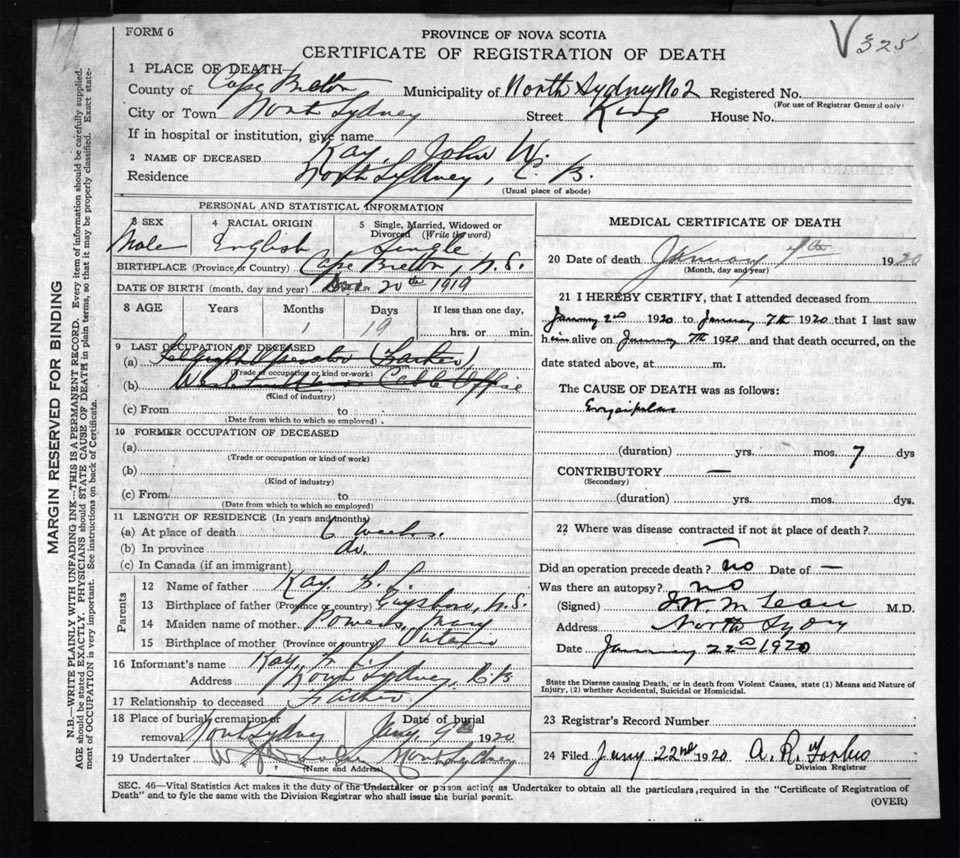 V 325
FORM 6
PROVINCE OF NOVA SCOTIA
CERTIFICATE OF REGISTRATION OF DEATH
1 PLACE OF DEATH
County of Cape Breton Municipality of North Sydney No 2 Registered No.
(For use of Registrar General only)
City or Town North Sydney Street King House No.
If in hospital or institution, give name
2 NAME OF DECEASED Kay, John W.
Residence North Sydney, C. B.
(Usual place of abode)
PERSONAL AND STATISTICAL INFORMATION
3 SEX 4 RACIAL ORIGIN 5 Single, Married, Widowed or Divorced (Write the word)
Male English Single
BIRTHPLACE (Province or Country) Cape Breton, N. S.
DATE OF BIRTH (month, day and year) 20th 1919
8 AGE Years Months Days If less than one day,
1 19 hrs. or min.
9 LAST OCCUPATION OF DECEASED
(a) Telegraph Operator (Father)
(Trade of occupation or kind or work)
(b) Western Union Cable Office
(Kind of industry)
(c) From to
(Date from which to which so employed)
10 FORMER OCCUPATION OF DECEASED
(a)
(Trade or occupation or kind of work)
(b)
(Kind of industry)
(c) From to
(Date from which to which so employed)
11 LENGTH OF RESIDENCE (In years and months)
(a) At place of death 6 weeks.
(b) In province do.
(c) In Canada (if an immigrant)
Parents
12 Name of father Kay,
13 Birthplace of father (Province or country) Guysboro, N. S.
14 Maiden name of mother Powers, Mary
15 Birthplace of mother (Province or country)
16 Informant's name Kay,
Address North Sydney, C. B.
17 Relationship to deceased Father
18 Place of burial, cremation or removal North Sydney Date of burial Jany. 9th 1920
19 Undertaker North Sydney
(Name and Address)
MEDICAL CERTIFICATE OF DEATH
20 Date of death January 7th 1920
(Month, day and year)
21 I HEREBY CERTIFY, that I attended deceased from
January 2nd 1920 to January 7th 1920 that I last saw
him alive on January 7th 1920 and that death occurred, on the
date stated above, at m.
The CAUSE OF DEATH was as follows:
Erysipelas
(duration) yrs. mos. 7 dys
CONTRIBUTORY —
(Secondary)
(duration) yrs. mos. dys.
22 Where was disease contracted if not at place of death?
Did an operation precede death? no Date of —
Was there an autopsy? no
(Signed) M.D.
Address North Sydney
Date January 22nd 1920
State the Disease causing Death, or in death from Violent Causes, state (1) Means and Nature of
Injury, (2) whether Accidental, Suicidal or Homicidal.
23 Registrar's Record Number
24 Filed Jany 22nd 1920 A. R. Forbes
Division Registrar
SEC. 46—Vital Statistics Act makes it the duty of the Undertaker or person acting as Undertaker to obtain all the particulars required in the "Certificate of Registration of
Death" and to fyle the same with the Division Registrar who shall issue the burial permit.
(OVER)
MARGIN RESERVED FOR BINDING
N.B.—WRITE PLAINLY WITH UNFADING INK—THIS IS A PERMANENT RECORD. Every item of information should be carefully supplied.
AGE should be stated EXACTLY. PHYSICIANS should STATE CAUSE OF DEATH in plain terms, so that it may be properly classified. Exact state-
ment of OCCUPATION is very important. See instructions on back of Certificate.